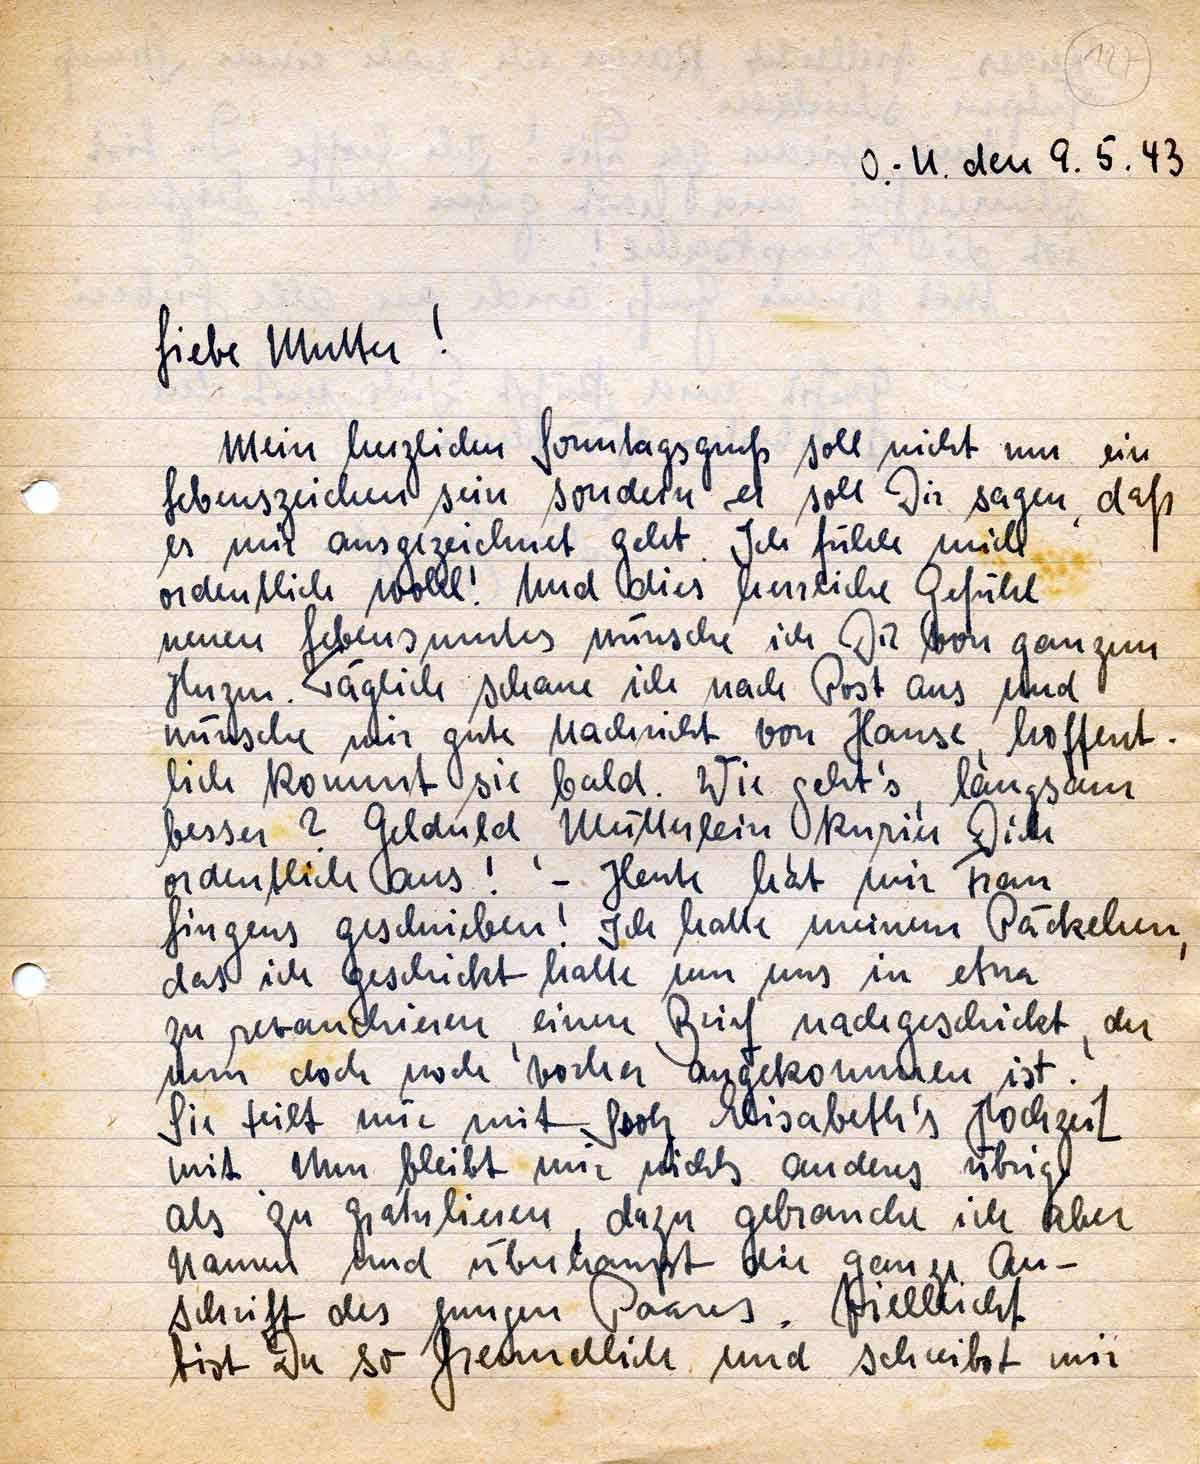 127
O.-U. den 9.5.43
Liebe Mutter!
Mein herzlichen Sonntagsgruß soll nicht nur ein
Lebenszeichen sein sondern er soll Dir sagen, daß
es mir ausgezeichnet geht. Ich fühle mich
ordentlich wohl! Und dies herrliche Gefühl
neuen Lebensmutes wünsche ich Dir von ganzem
Herzen. Täglich schaue ich nach Post aus und
wünsche mir gute Nachricht von Hause, hoffent-
lich kommt sie bald. Wie geht's, langsam
besser? Gelduld Mütterlein kurier Dich
ordentlich aus! - Heute hat mir Frau
Lingens geschrieben! Ich hatte meinem Päckchen,
das ich geschickt hatte um uns in etwa
zu revanchieren, einen Brief nachgeschickt, der
nun doch noch vorher angekommen ist.
Sie teilt mir mit Elisabeth's Hochzeit
mit. Nun bleibt mir nichts anders übrig
als zu gratulieren, dazu gebrauche ich aber
Namen und überhaupt die ganze An-
schrift des jungen Paares. Vielleicht
bist Du so freundlich und schreibst mir